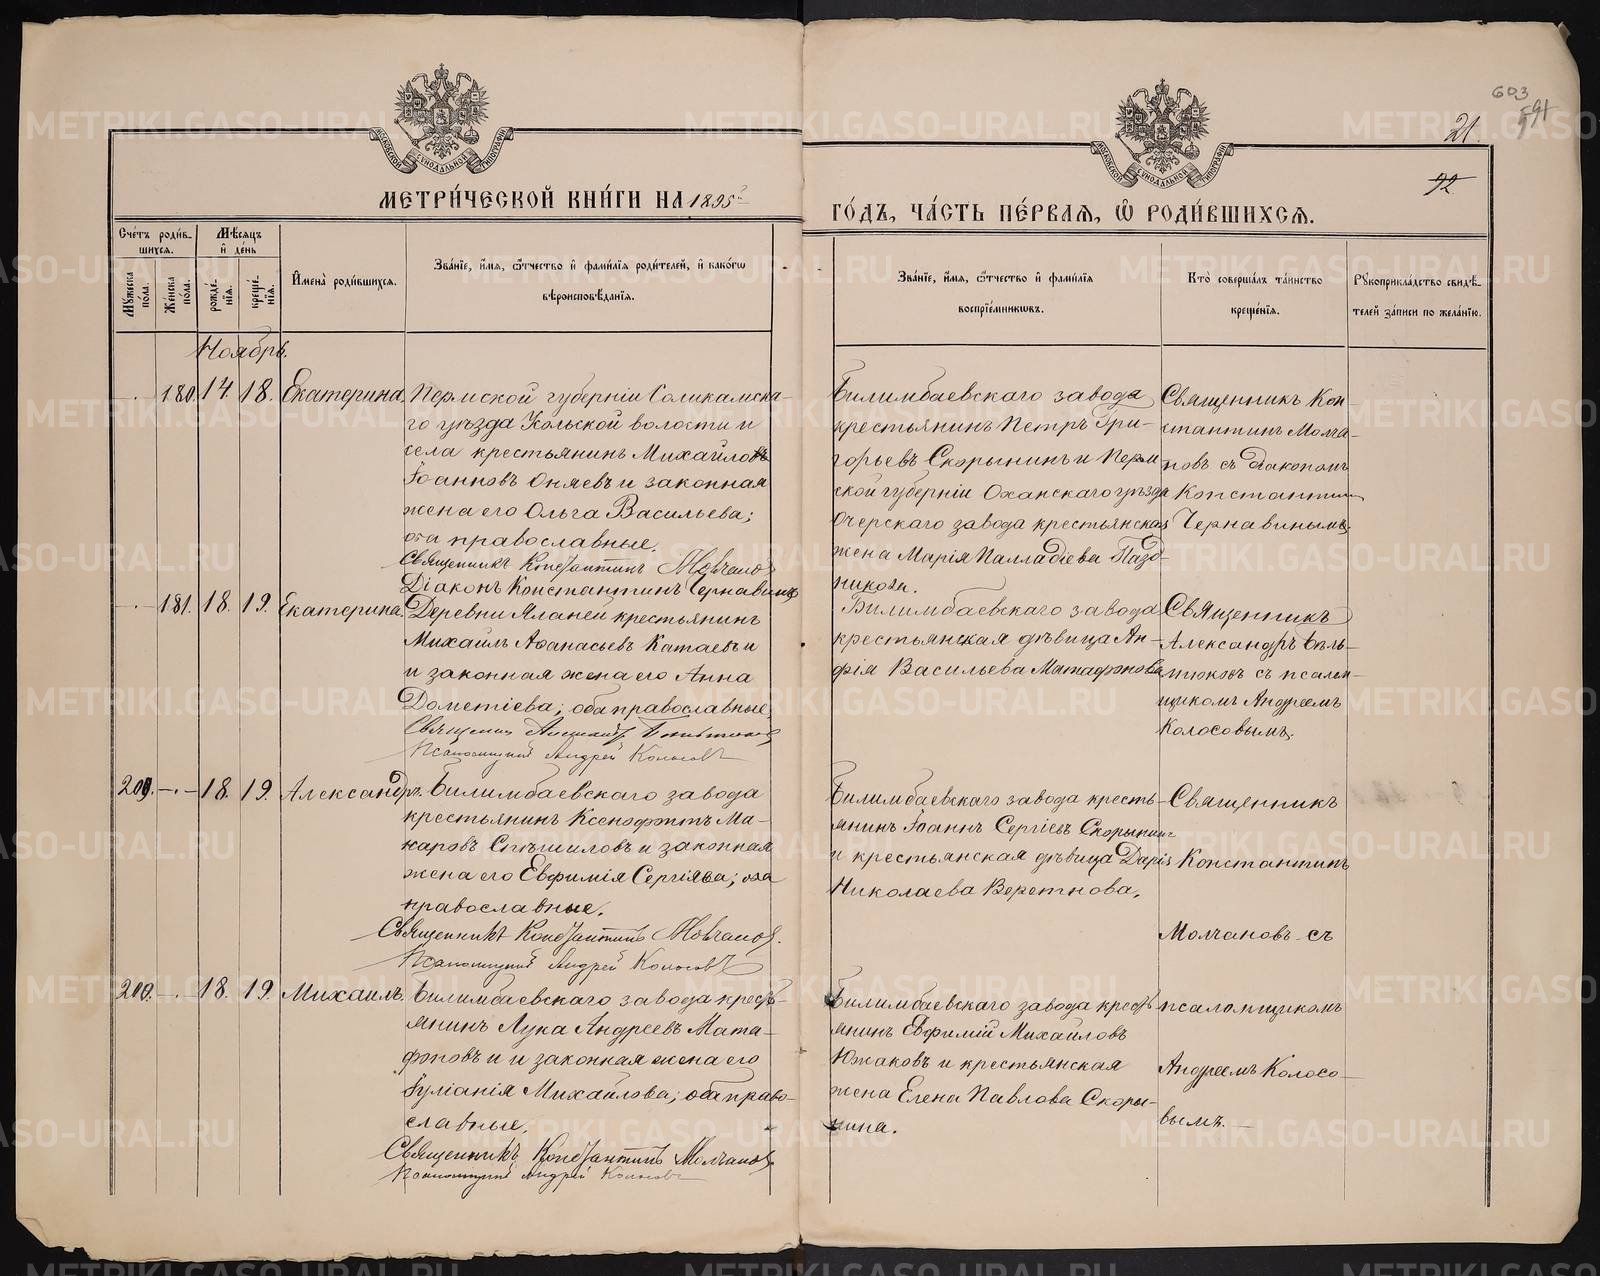 603
591
21.
92
МОСКОВСКОЙ СѴНОДАЛЬНОЙ ТИПОГРАФІИ
МОСКОВСКОЙ СѴНОДАЛЬНОЙ ТИПОГРАФІИ
МЕТРИ́ЧЕСКОЙ КНИ́ГИ НА 1895
ГО́ДЪ, ЧА́СТЬ ПЕ́РВАЯ, Ѡ҆ РОДИ́ВШИХСЯ.
Сче́тъ роди́в-
шихся.
Му́жеска по́ла.
Же́нска по́ла.
Мѣ́сяцъ и҆ де́нь
рожде́-
нія.
креще́-
нія.
И҆мена̀ роди́вшихся.
Зва́нїе, и҆́мя, ѻ҆́тчество и҆ фами́лїя роди́телей, и҆ како́гѡ
вѣроисповѣ́данїя.
Зва́нїе, и҆́мя, ѻ҆́тчество и҆ фами́лїя
воспрїе́мникѡвъ.
Кто̀ соверша́лъ та́инство
креще́нїя.
Рꙋкоприкла́дство свидѣ́-
телей за́писи по жела́нїю.
Ноябрь.
180. 14. 18. Екатерина.
Пермской губерніи Соликамска-
го уѣзда Усольской волости и
села крестьянинъ Михайловъ
Іоанновъ Оняевъ и законная
жена его Ольга Васильева;
оба православные.
Священникъ Константинъ Молчановъ
Діаконъ Константинъ Чернавинъ
Билимбаевскаго завода
крестьянинъ Петръ Гри-
горьевъ Скорынинъ и Перм-
ской губерніи Оханскаго уѣзда
Очерскаго завода крестьянская
жена Марія Палладіева Пазд-
никова.
Священникъ Кон-
стантинъ Молча-
новъ съ діакономъ
Константиномъ
Чернавинымъ.
181. 18. 19. Екатерина.
Деревни Яланей крестьянинъ
Михаилъ Аѳанасьевъ Катаевъ и
и законная жена его Анна
Дометіева; оба православные
Священникъ Александръ
Псаломщикъ Андрей Колосовъ
Билимбаевскаго завода
крестьянская дѣвица Ан-
фія Васильева Матафонова
Священникъ
Александръ Бѣль-
тюковъ съ псалом-
щикомъ Андреемъ
Колосовымъ.
209. 18. 19. Александръ.
Билимбаевскаго завода
крестьянинъ Ксенофонтъ Ма-
каровъ Спѣшиловъ и законная
жена его Евфимія Сергіева; оба
православные.
Священникъ Константинъ Молчановъ.
Псаломщикъ Андрей Колосовъ
Билимбаевскаго завода кресть-
янинъ Іоаннъ Сергіевъ Скорынинъ
и крестьянская дѣвица Дарія
Николаева Веретнова.
Священникъ
Константинъ
Молчановъ съ
псаломщикомъ
Андреемъ Колосо-
вымъ.
210. 18. 19. Михаилъ.
Билимбаевскаго завода кресть-
янинъ Лука Андреевъ Мата-
фоновъ и и законная жена его
Іуліанія Михайлова; оба право-
славные.
Священникъ Константинъ Молчановъ.
Псаломщикъ Андрей Колосовъ
Билимбаевскаго завода кресть-
янинъ Евфимій Михайловъ
Южаковъ и крестьянская
жена Елена Павлова Скоры-
нина.
METRIKI.GASO-URAL.RU